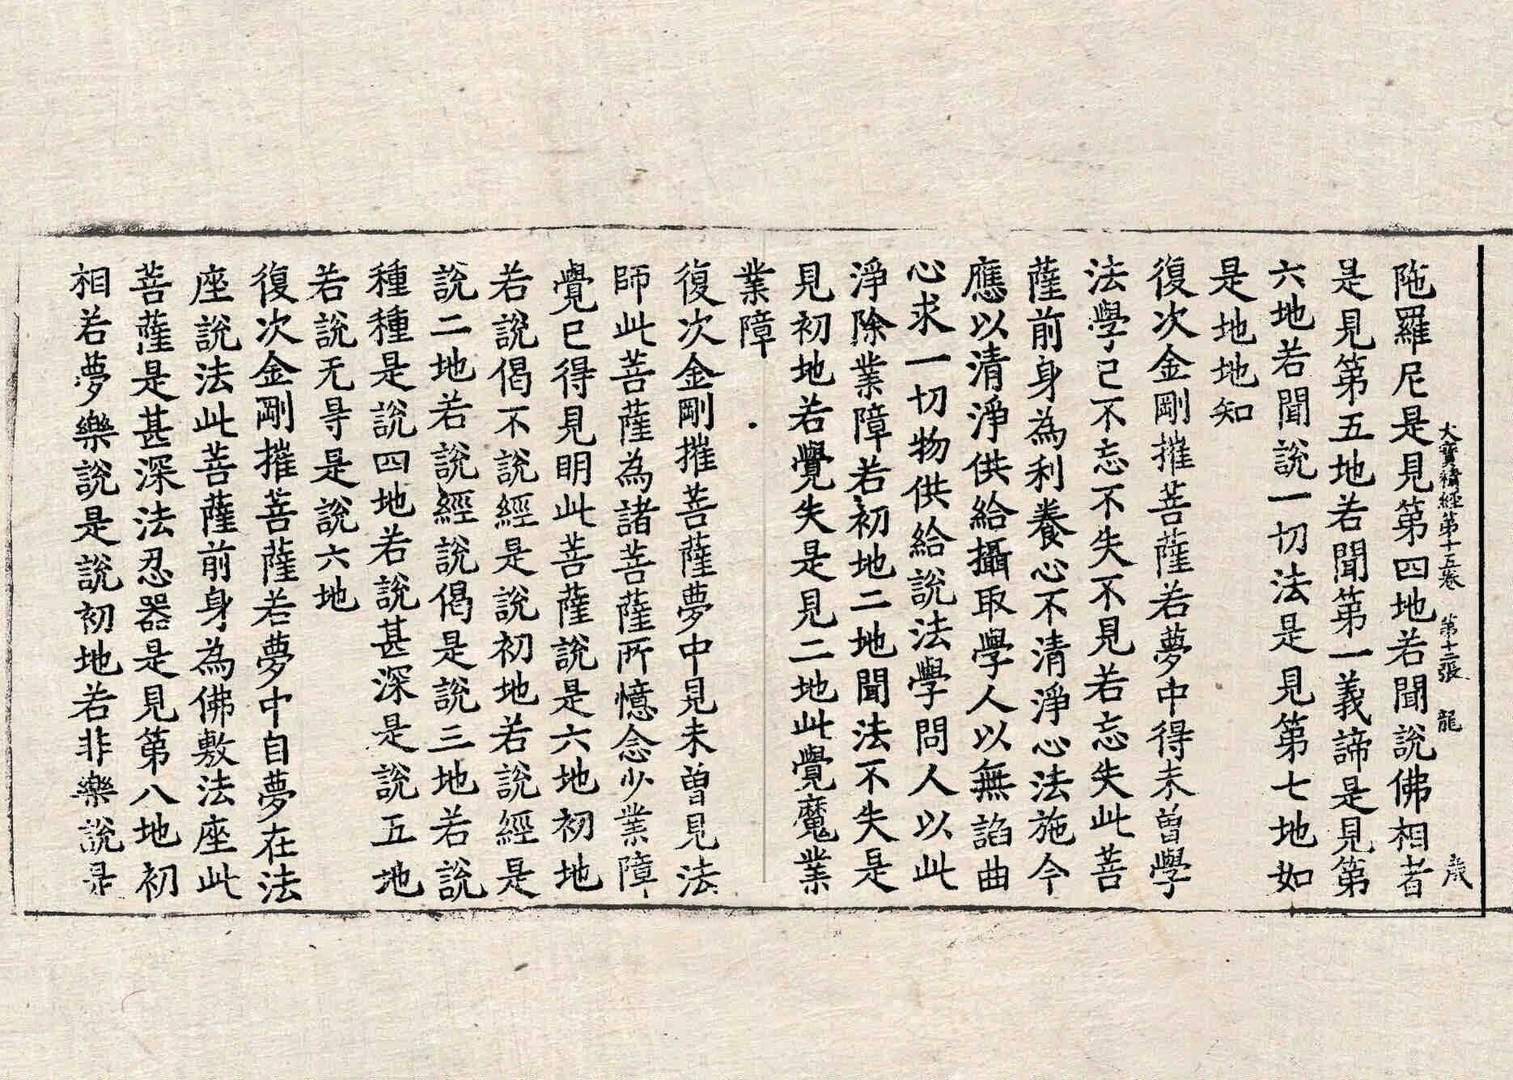 大寶積經第十五卷 第十二張 龍
陁羅尼是見第四地若聞說佛相者
是見第五地若聞第一義諦是見第
六地若聞說一切法是見第七地如
是地地知
復次金剛摧菩薩若夢中得未曾學
法學已不忘不失不見若忘失此菩
薩前身為利養心不清淨心法施今
應以清淨供給攝取學人以無諂曲
心求一切物供給說法學問人以此
淨除業障若初地二地聞法不失是
見初地若覺失是見二地此覺魔業
業障
復次金剛摧菩薩夢中見未曾見法
師此菩薩為諸菩薩所憶念少業障
覺已得見明此菩薩說是六地初地
若說偈不說經是說初地若說經是
說二地若說經說偈是說三地若說
種種是說四地若說甚深是說五地
若說无㝵是說六地
復次金剛摧菩薩若夢中自夢在法
座說法此菩薩前身為佛敷法座此
菩薩是甚深法忍器是見第八地初
相若夢樂說是說初地若非樂說是